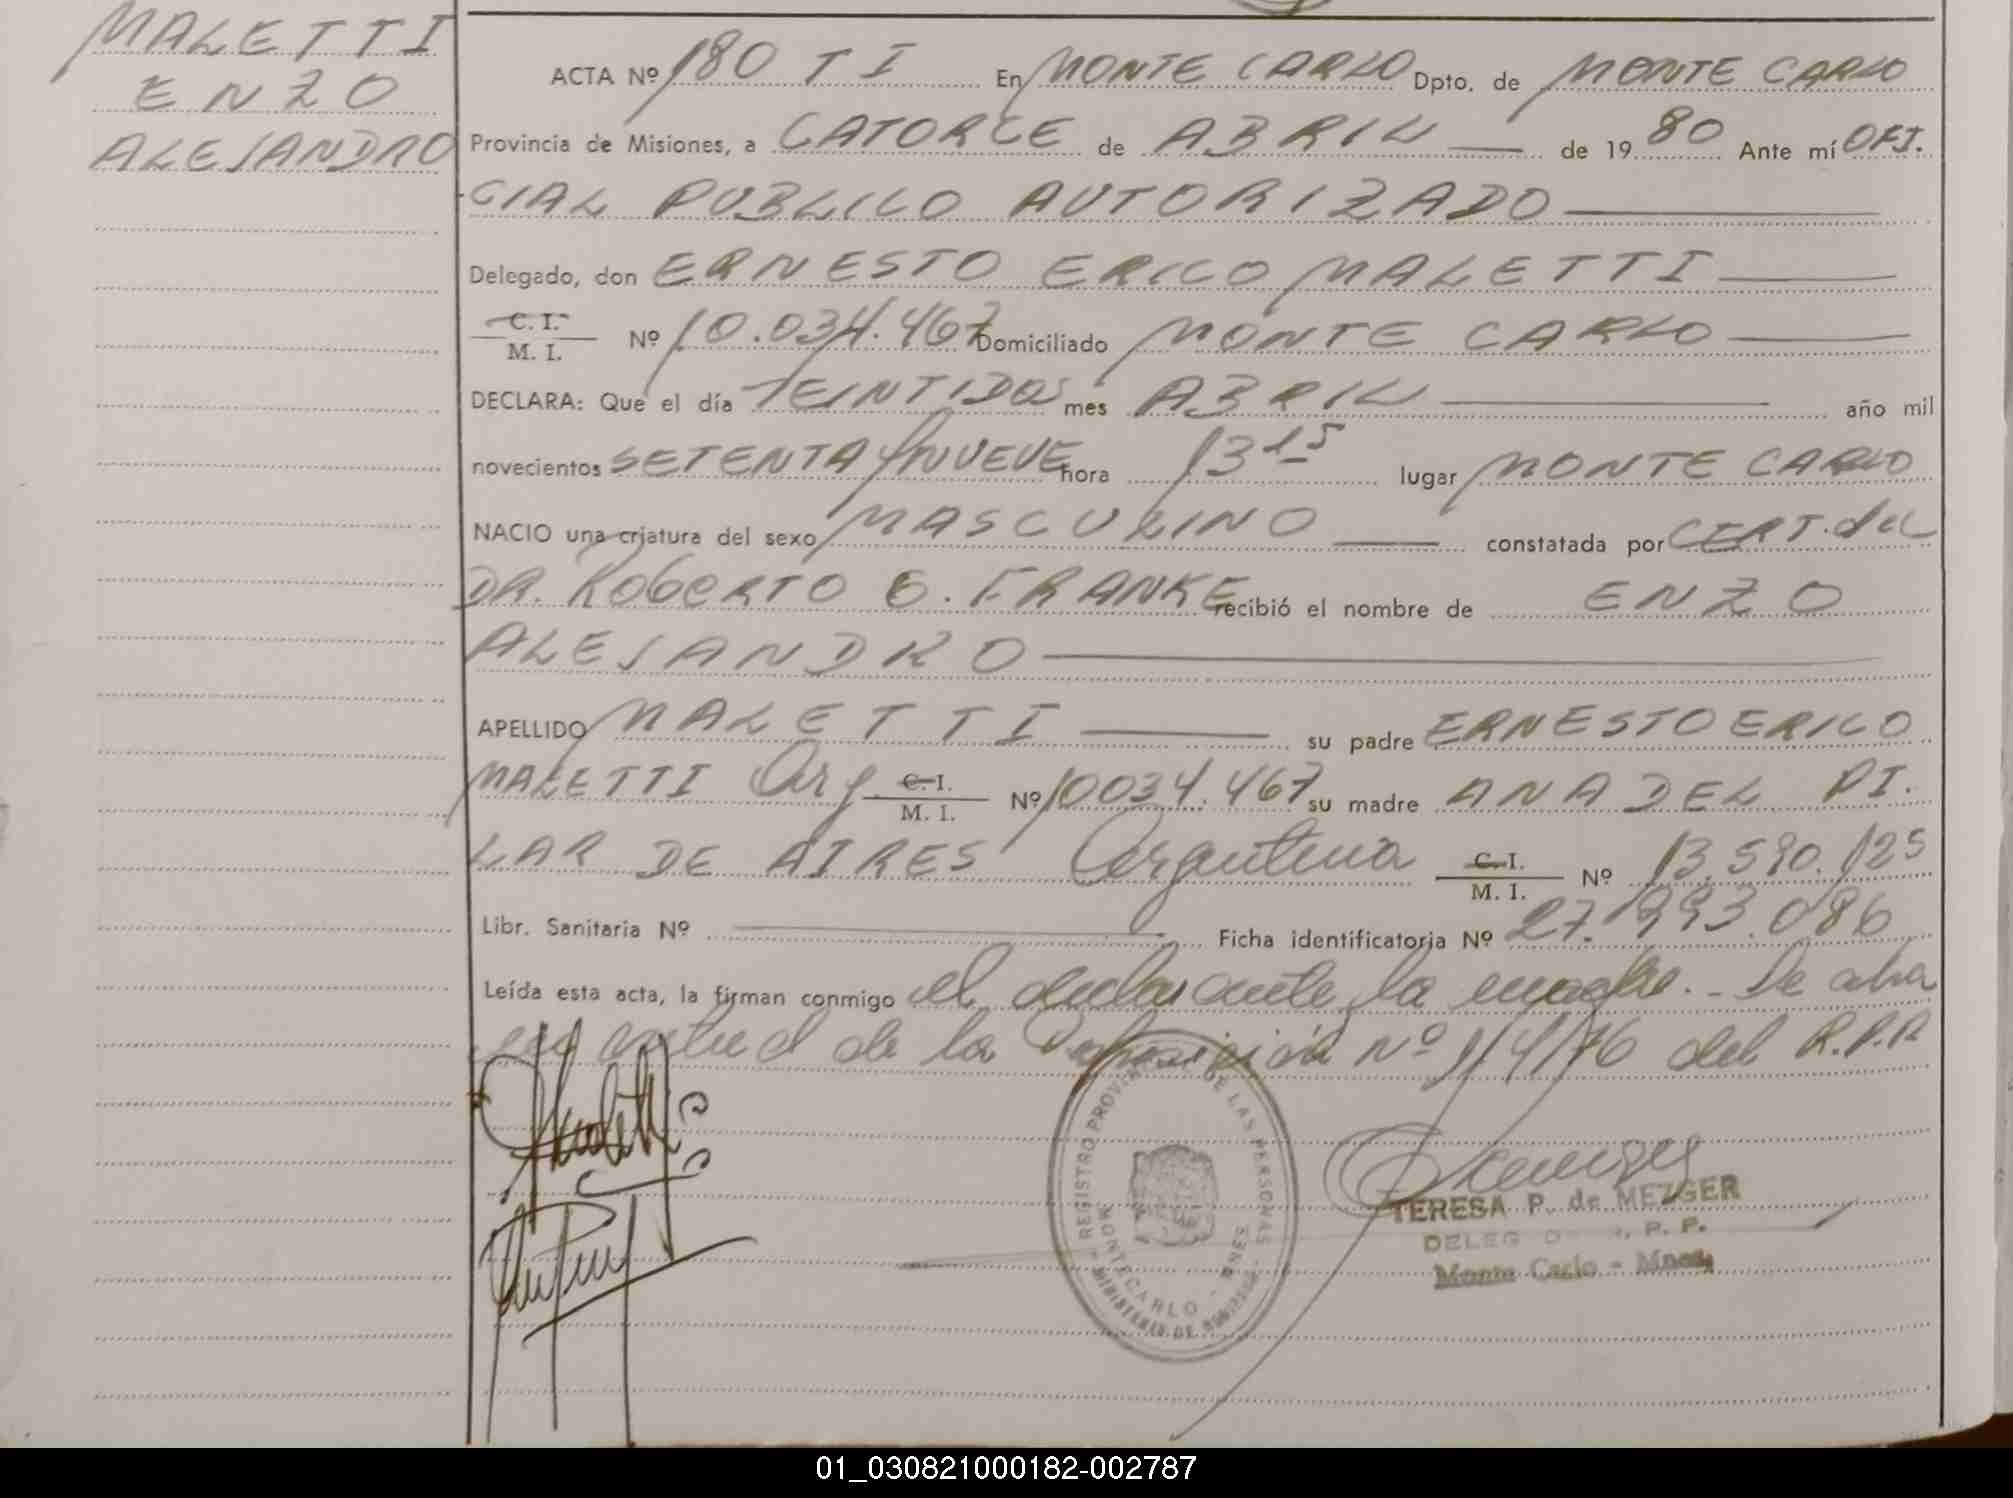 MALETTI
ENZO
ALEJANDRO
ACTA Nº 180 TI En MONTE CARLO Dpto. de MONTE CARLO
Provincia de Misiones, a CATORCE de ABRIL de 1980 Ante mí OFI.
CIAL PUBLICO AUTORIZADO
Delegado, don ERNESTO ERICO MALETTI
C. I.
M. I. Nº 10.034.467 Domiciliado MONTE CARLO
DECLARA: Que el día VEINTIDOS mes ABRIL año mil
novecientos SETENTA Y NUEVE hora 13 15 lugar MONTE CARLO
NACIO una criatura del sexo MASCULINO constatada por CERT. del
DR. ROBERTO O. FRANKE recibió el nombre de ENZO
ALEJANDRO
APELLIDO MALETTI su padre ERNESTO ERICO
MALETTI Arg. C. I.
M. I. Nº 10034.467 su madre ANA DEL PI.
LAR DE AIRES Argentina C. I.
M. I. Nº 13.590.125
Libr. Sanitaria Nº Ficha identificatoria Nº 27.993.086
Leída esta acta, la firman conmigo el declarante, la madre.- Se labra
en virtud de la Disposición nº 114/76 del R.P.P.
REGISTRO PROVINCIAL DE LAS PERSONAS
MONTECARLO - MNES
MINISTERIO DE
TERESA P. de MEZGER
R. P. P.
Monte Carlo - Mnes.
01_030821000182-002787